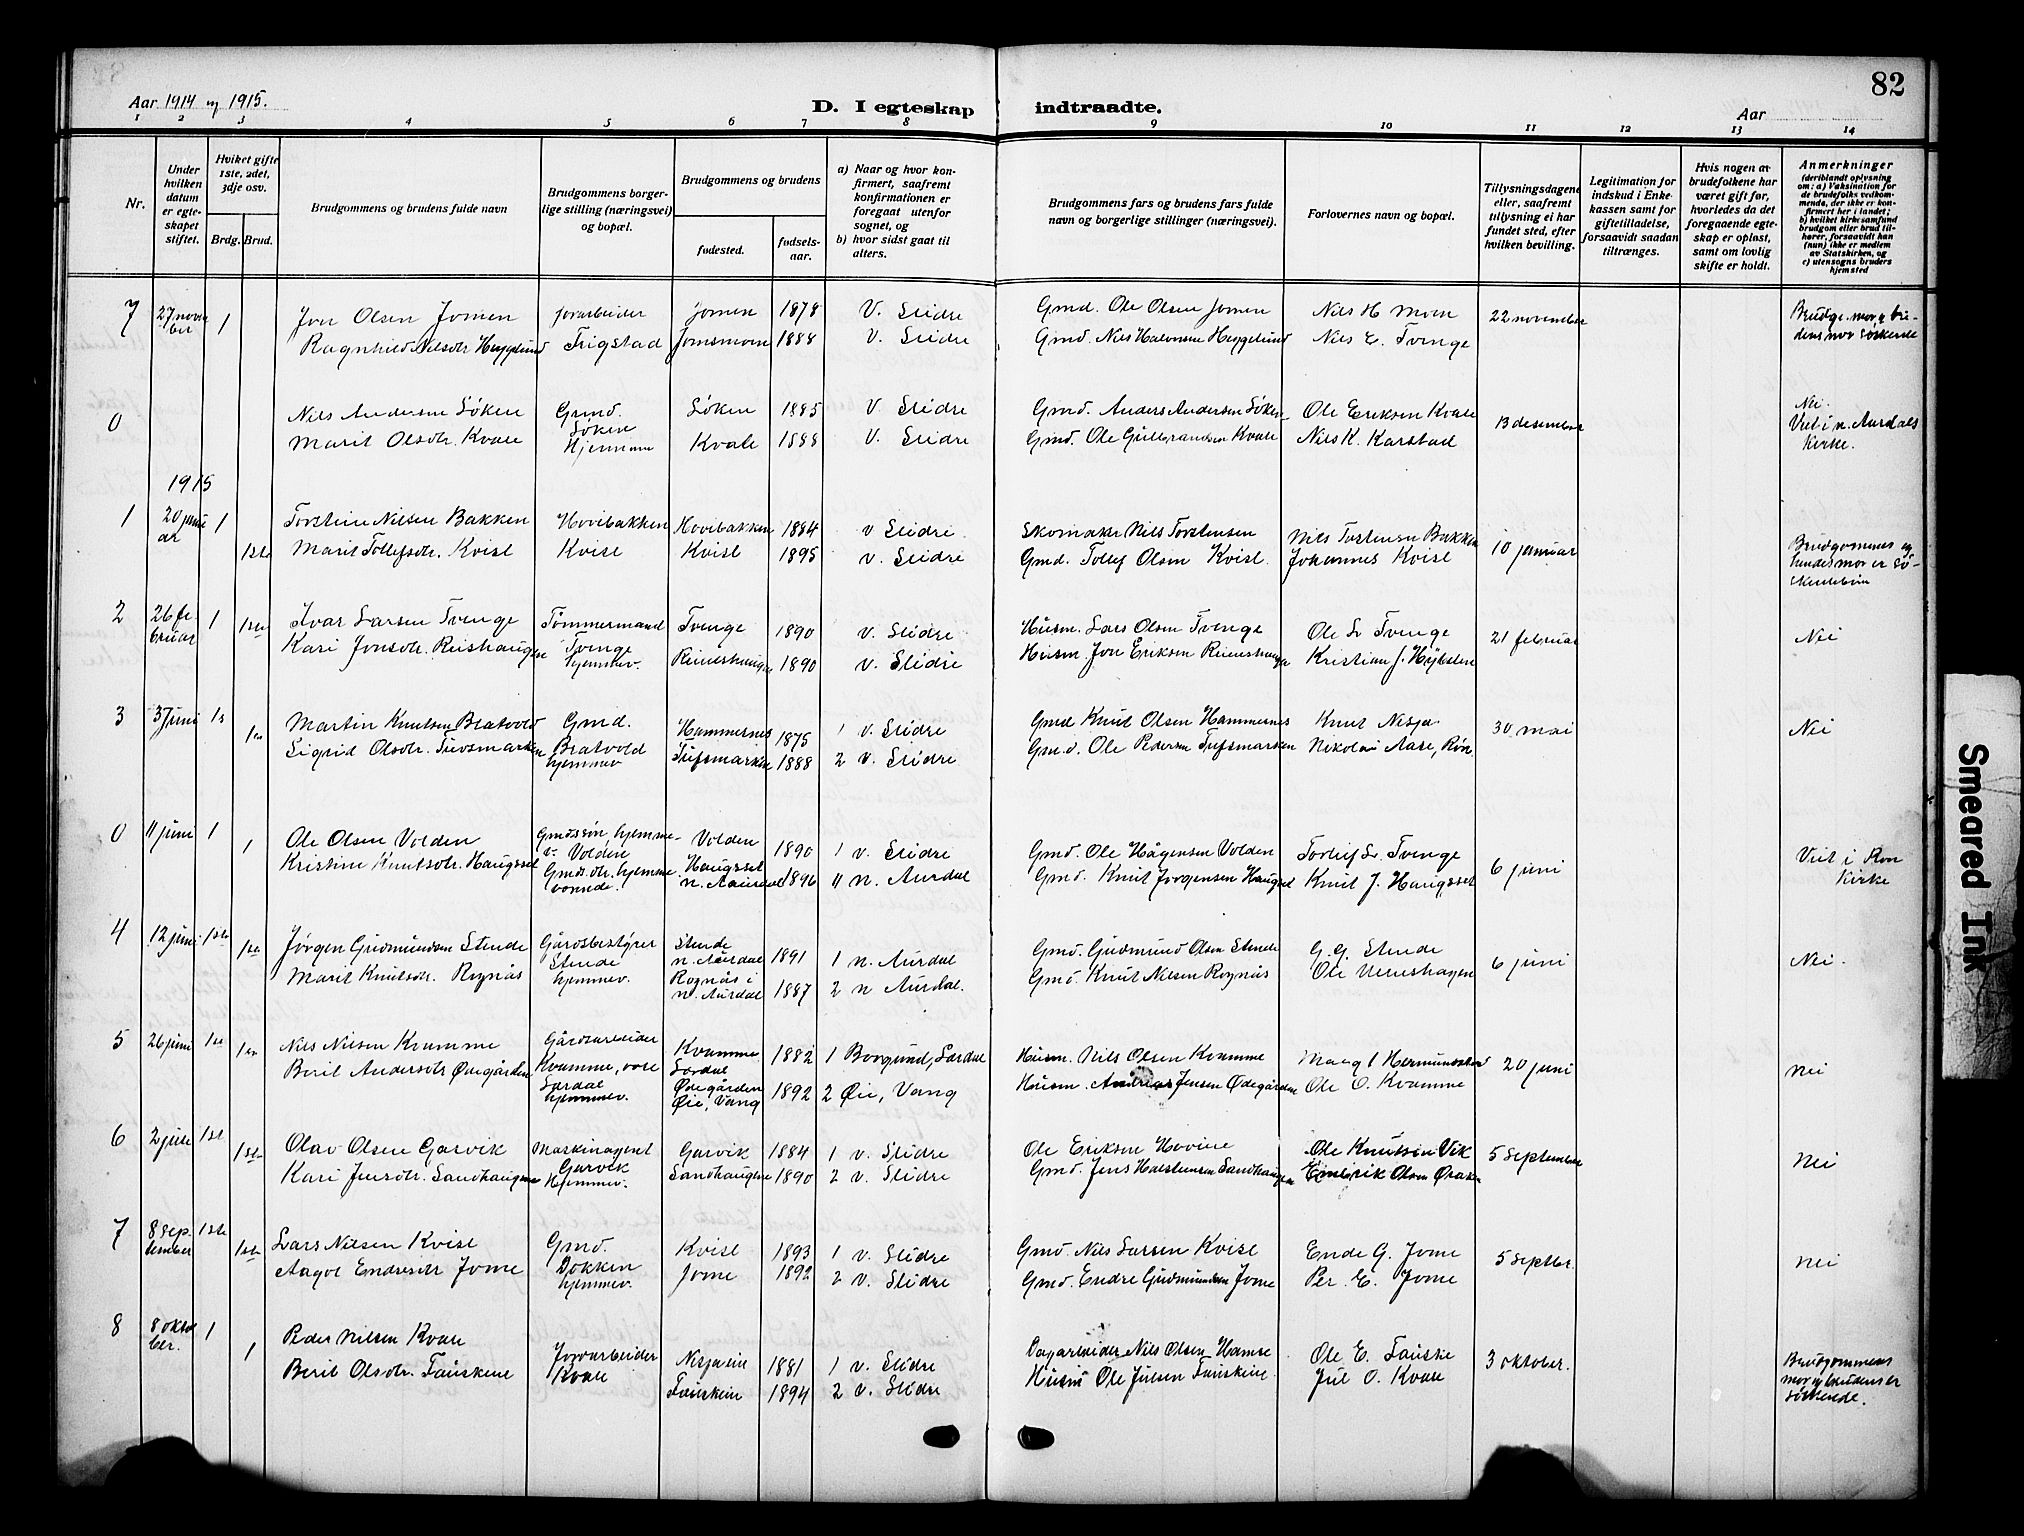 82
Aar 1914 og 1915.
D. I egteskap indtraadte.
Aar
1 2 3 4 5 6 7 8 9 10 11 12 13 14
Nr.
Under hvilken datum er egteskapet stiftet.
Hvilket gifte 1ste, 2det, 3dje osv.
Brdg. Brud.
Brudgommens og brudens fulde navn
Brudgommens borgerlige stilling (næringsvei) og bopæl.
Brudgommens og brudens
fødested.
fødselsaar.
a) Naar og hvor konfirmert, saafremt konfirmationen er foregaat utenfor sognet, og
b) hvor sidst gaat til alters.
Brudgommens fars og brudens fars fulde navn og borgerlige stillinger (næringsvei).
Forlovernes navn og bopæl.
Tillysningsdagene eller, saafremt tillysning ei har fundet sted, efter hvilken bevilling.
Legitimation for indskud i Enkekassen samt for giftetilladelse, forsaavidt saadan tiltrænges.
Hvis nogen av brudefolkene har været gift før, hvorledes da det foregaaende egteskap er opløst, samt om lovlig skifte er holdt.
Anmerkninger (deriblandt oplysning om: a) Vaksination for de brudefolks vedkommende, der ikke er konfirmert her i landet; b) hvilket kirkesamfund brudgom eller brud tilhører, forsaavidt han (hun) ikke er medlem av Statskirken, og c) utensogns bruders hjemsted
7 27 november 1 Jon Olsen Jomen Jordarbeider Jomen 1878 V. Slidre Gmd. Ole Olsen Jomen Nils H Moen 22 november Brudg. mor og brudens mor søskende
Ragnhild Nilsdtr Heggelund Trigstad Jomsmoen 1888 V. Slidre Gmd. Nils Halvorsen Heggelund Nils E. Tvenge
0 Nils Andersen Løken Gmd. Løken Løken 1885 V Slidre Gmd. Anders Andersen Løken Ole Eriksen Kvale 13 desember Nei. Viet i n. Aurdals Kirke.
Marit Olsdtr. Kvale Hjemme Kvale 1888 V. Slidre Gmd. Ole Gulbrandsen Kvale Nils K. Karstad
1915
1 20 januar 1 Torstein Nilsen Bakken Hovibakken Hovibakken 1884 v Slidre Skomaker Nils Torstensen Nils Torstensen Bakken 10 januar Brudgommens og
1ste Marit Tollefsdtr. Kvisl Kvisl Kvisl 1895 v. Slidre Gmd. Tollef Olsen Kvisl. Johannes Kvisl
2 26 februar 1 1ste Ivar Larsen Tvenge Tømmermand Tvenge Tvenge 1890 v. Slidre Husm. Lars Olsen Tvenge Ole L Tvenge 21 februar Nei
Kari Jonsdtr. hjemmev. 1890 v. Slidre Husm Jon Eriksen Kristian J.
3 3 juni 1s 1en Martin Knutsen Bratvold Gmd. Bratvold Hammernes 1875 1 v. Slidre Gmd Knut Olsen Hammernes Knut Nesja 30 mai Nei
Sigrid Olsdtr. hjemmev Tufsmarken 1888 2 v. Slidre Gmd. Ole Pedersen Tufsmarken Nikolai Aase, Røn
0 11 juni 1 1 Ole Olsen Volden Gmdssøn hjemmev. Volden Volden 1890 1 v. Slidre Gmd. Ole Hågensen Volden Tollef L. Tvenge 6 juni Viet i Røn Kirke
Kristine Knutsdtr. Haugsset Gmdsdtr. hjemmeværende. Haugsset n. Aurdal 1896 11 n. Aurdal Gmd. Knut Jørgensen Haugset Knut J. Haugsset
4 12 juni 1ste 1ste Jørgen Gudmundsen Stende Gårdsbestyrer Stende Stende n. Aurdal 1891 1 n. Aurdal Gmd. Gudmund Olsen Stende G. G. Stende 6 juni Nei.
Marit Knutsdtr. Rognås hjemmev. Rognås i n. Aurdal 1887 2 n Aurdal. Gmd. Knut Nilsen Rognås Ole
5 26 juni 1ste 1en Nils Nilsen Kvamme Gårdsarbeider Kvamme, Lærdal Kvamme Lærdal 1882 1 Borgund, Lærdal Husm. Nils Olsen Kvamme 20 juni Nei
Berit Andersdtr Ødegården hjemmev. Ødegården Øie, Vang 1892 2 Øie, Vang Husm. Andreas Jensen Ødegården Ole O. Kvamme
6 2 juli 1ste 1ste Olav Olsen Garvik Maskinagent Garvik Garvik 1884 1 v. Slidre Ole Eriksen Hovine Ole Knutsen Vik 5 September Nei
Kari Jensdtr. Sandhaugene Hjemmev. Sandhaugene 1890 2 v. Slidre Gmd. Jens Halstensen Sandhaugen Olsen
7 8 september 1ste 1ste Lars Nilsen Kvisl Gmd. Dokken Kvisl 1893 1 v. Slidre Gmd. Nils Larsen Kvisl Endr G. Jome 5 septbr. Nei
Aagot Endresdtr Jome hjemmev. Jome 1892 2 v. Slidre Gmd. Endre Gudmundsen Jome Per. E. Jome
8 8 oktober. 1 1 Peder Nilsen Kvale Jordarbeider Kvale 1881 1 v. Slidre Dagarbeider Nils Olsen Ole E. Fauske 3 oktober. Brudgommens mor og brudens er søskende.
Berit Olsdtr. Fauskene Fauskein 1894 2 v. Slidre Husm Ole Julsen Fauskene Jul O. Kvale
Smeared Ink